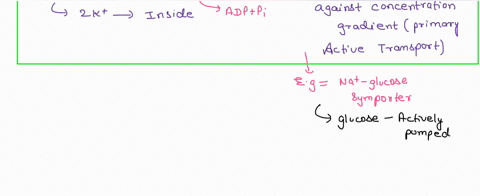 ↳ 2K+ → Inside
↳ ADP+Pi
against concentration
gradient (primary
Active Transport)
E.g = Na+-glucose
Symporter
↳ glucose - Actively
pumped